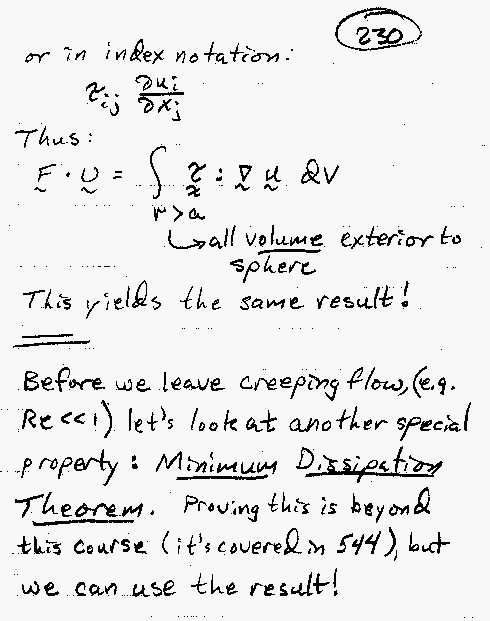 230
or in index notation:
τ_ij ∂u_i/∂x_j
Thus:
F · U = ∫_{r>a} τ : ∇ u dV
↳ all volume exterior to
sphere
This yields the same result!
Before we leave creeping flow, (e.g.
Re << 1) let's look at another special
property: Minimum Dissipation
Theorem. Proving this is beyond
this course (it's covered in 544), but
we can use the result!